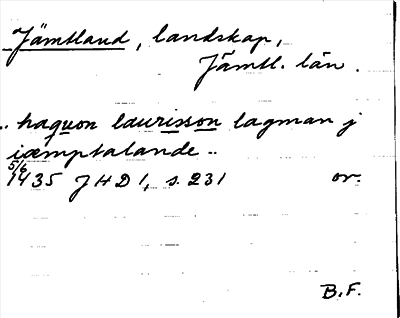 Jämtland, landskap,
Jämtl. län.
.. haquon laurisson lagman j
iæmptalande ..
5/6
1435 JHD 1, s. 231 or.
B.F.